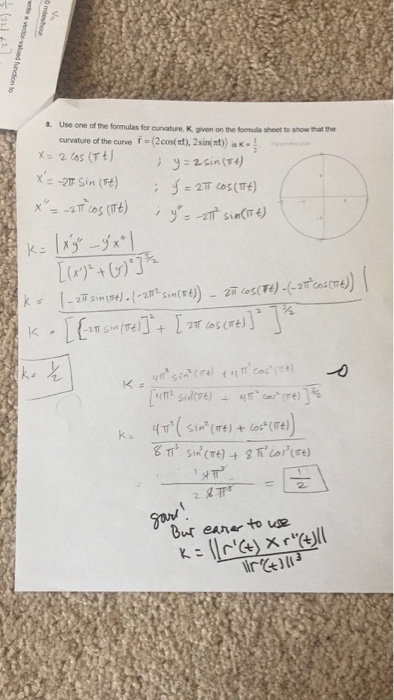 0 miles/hour
write a vector-valued function to
8. Use one of the formulas for curvature, K, given on the formula sheet to show that the
curvature of the curve r⃗ = (2cos(πt), 2sin(πt)) is K = 1/2
x = 2 cos(πt) ; y = 2 sin(πt)
x' = -2π sin(πt) ; y' = 2π cos(πt)
x" = -2π² cos(πt) ; y" = -2π² sin(πt)
K = |x'y" - y'x"| / [(x')² + (y')²]^3/2
K = |-2π sin(πt)·(-2π² sin(πt)) - 2π cos(πt)·(-2π² cos(πt))|
K = [[-2π sin(πt)]² + [2π cos(πt)]²]^3/2
K = 1/2
K = 4π³ sin²(πt) + 4π³ cos²(πt) / [4π² sin²(πt) + 4π² cos²(πt)]^3/2
K = 4π³(sin²(πt) + cos²(πt)) / 8π³ sin²(πt) + 8π³ cos²(πt)
= 1/2
But easier to use
K = ||r'(t) × r"(t)|| / ||r'(t)||³